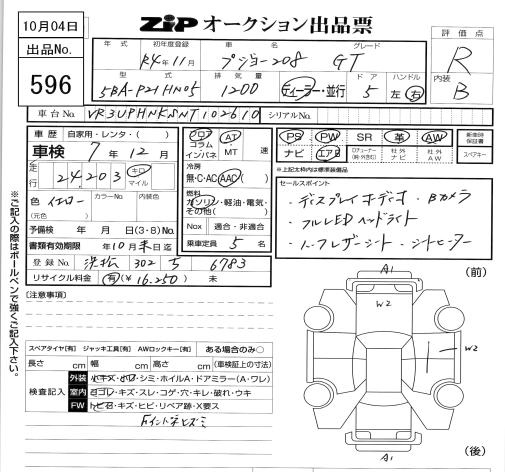 10月04日
出品No.
596
ZIP オークション出品票
評価点
R
内装
B
年式 初年度登録 車名 グレード
R4年11月 プジョー208 GT
型式 排気量 ドア ハンドル
5BA-P21HN05 1200 ディーラー・並行 5 左・右
車台No. VR3UPHNKSNT102610 シリアルNo.
車歴 自家用・レンタ・( )
車検 7年12月
走行 24,203 キロ マイル
色 イエロー カラーNo. 内装色
(元色)
予備検 年 月 日(3・8)No.
書類有効期限 年10月末日迄
登録No. 302 ち 6783
リサイクル料金 有(¥16,250) 未
フロア コラム インパネ
AT MT 速
冷房
無・C・AC・AAC( )
燃料
ガソリン・軽油・電気・その他( )
Nox 適合・非適合
乗車定員 5名
PS PW SR 革 AW
ナビ エアB Dチューナー 社外ナビ 社外AW
新車時保証書
スペアキー
※上記太枠内は標準装備品
セールスポイント
・ディスプレイオーディオ・Bカメラ
・フルLEDヘッドライト
・ハーフレザーシート・シートヒーター
※ご記入の際はボールペンで強くご記入下さい。
[注意事項]
スペアタイヤ[有] ジャッキ工具[有] AWロックキー[有] ある場合のみ○
長さ cm 幅 cm 高さ cm (車検証上の寸法)
検査記入
外装 小キズ・ヨワ・シミ・ホイルA・ドアミラー(A・ワレ)
室内 ヨゴレ・キズ・スレ・コゲ・穴・キレ・破れ・ウキ
FW トビ石・キズ・ヒビ・リペア跡・X要ス
(前)
A1
W2
W2
A1
(後)